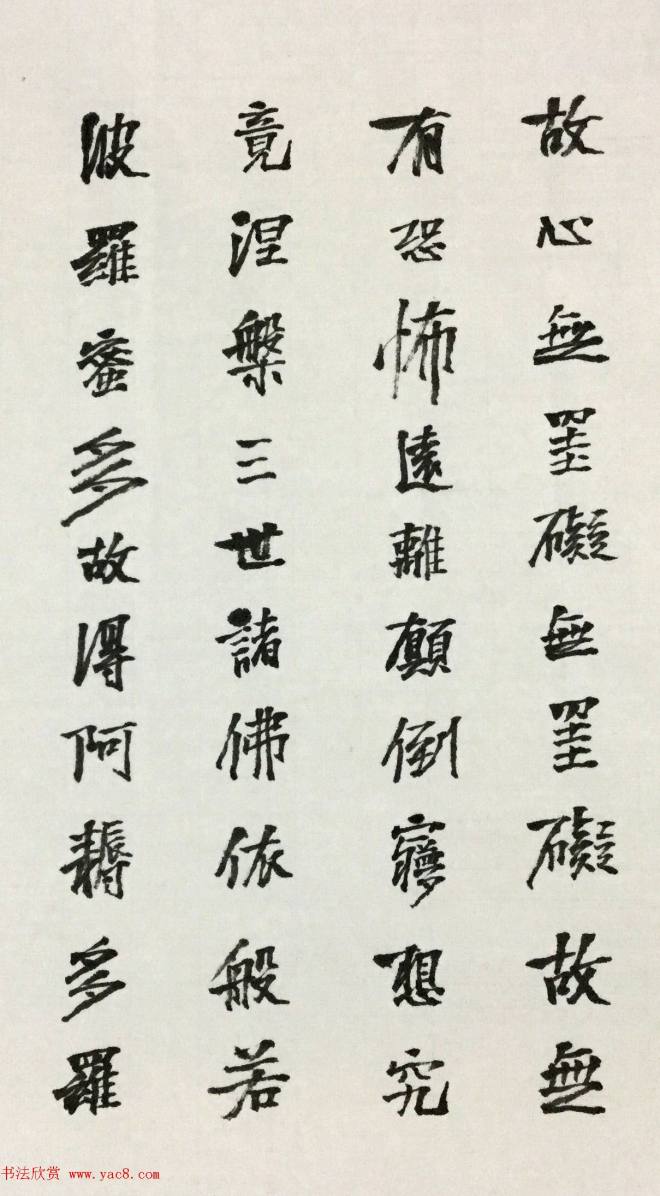 故心無罣礙無罣礙故無
有恐怖遠離顛倒寢想究
竟涅槃三世諸佛依般若
波羅蜜多故得阿耨多羅
书法欣赏 www.yac8.com